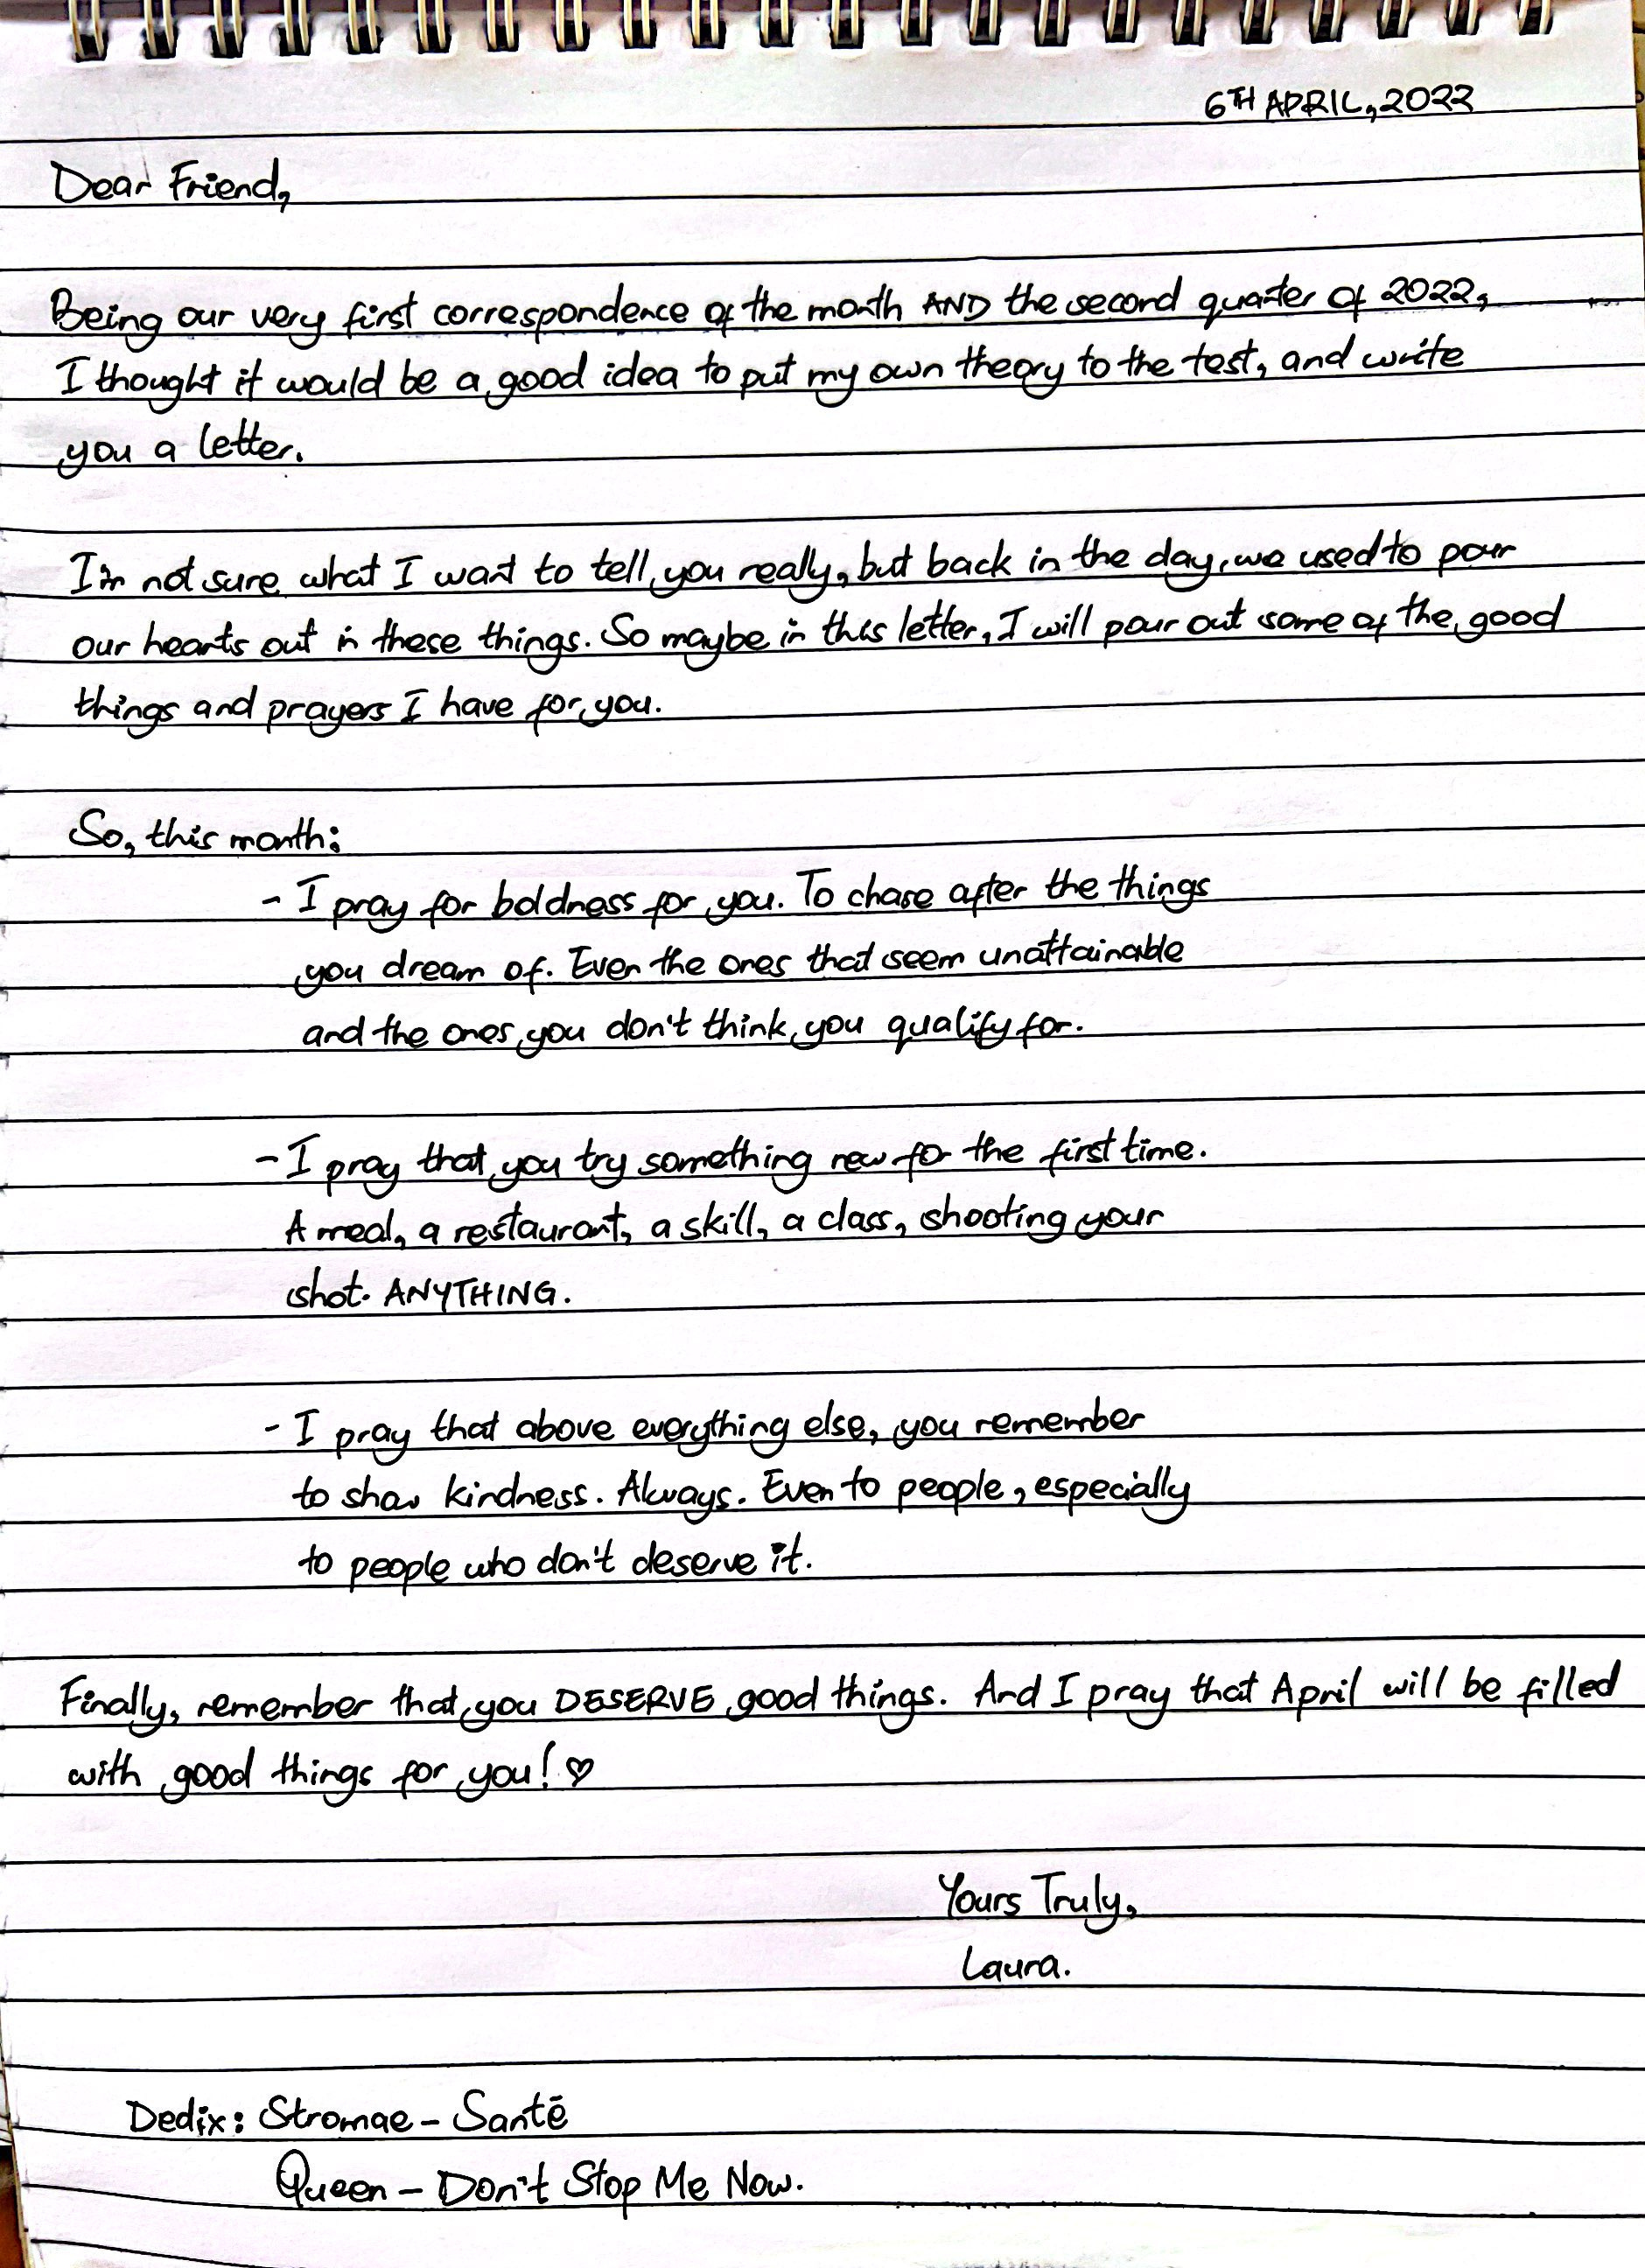 6TH APRIL, 2022
Dear Friend,
Being our very first correspondence of the month AND the second quarter of 2022,
I thought it would be a good idea to put my own theory to the test, and write
you a letter.
I'm not sure what I want to tell you really, but back in the day, we used to pour
our hearts out in these things. So maybe in this letter, I will pour out some of the good
things and prayers I have for you.
So, this month:
- I pray for boldness for you. To chase after the things
you dream of. Even the ones that seem unattainable
and the ones you don't think you qualify for.
- I pray that you try something new for the first time.
A meal, a restaurant, a skill, a class, shooting your
shot. ANYTHING.
- I pray that above everything else, you remember
to show kindness. Always. Even to people, especially
to people who don't deserve it.
Finally, remember that you DESERVE good things. And I pray that April will be filled
with good things for you! ♡
Yours Truly,
Laura.
Dedix: Stromae - Santé
Queen - Don't Stop Me Now.